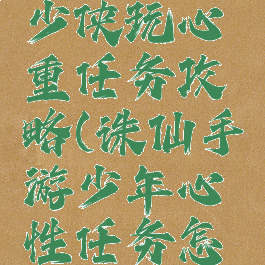 少侠玩心
重任务攻
略(诛仙手
游少年心
性任务怎